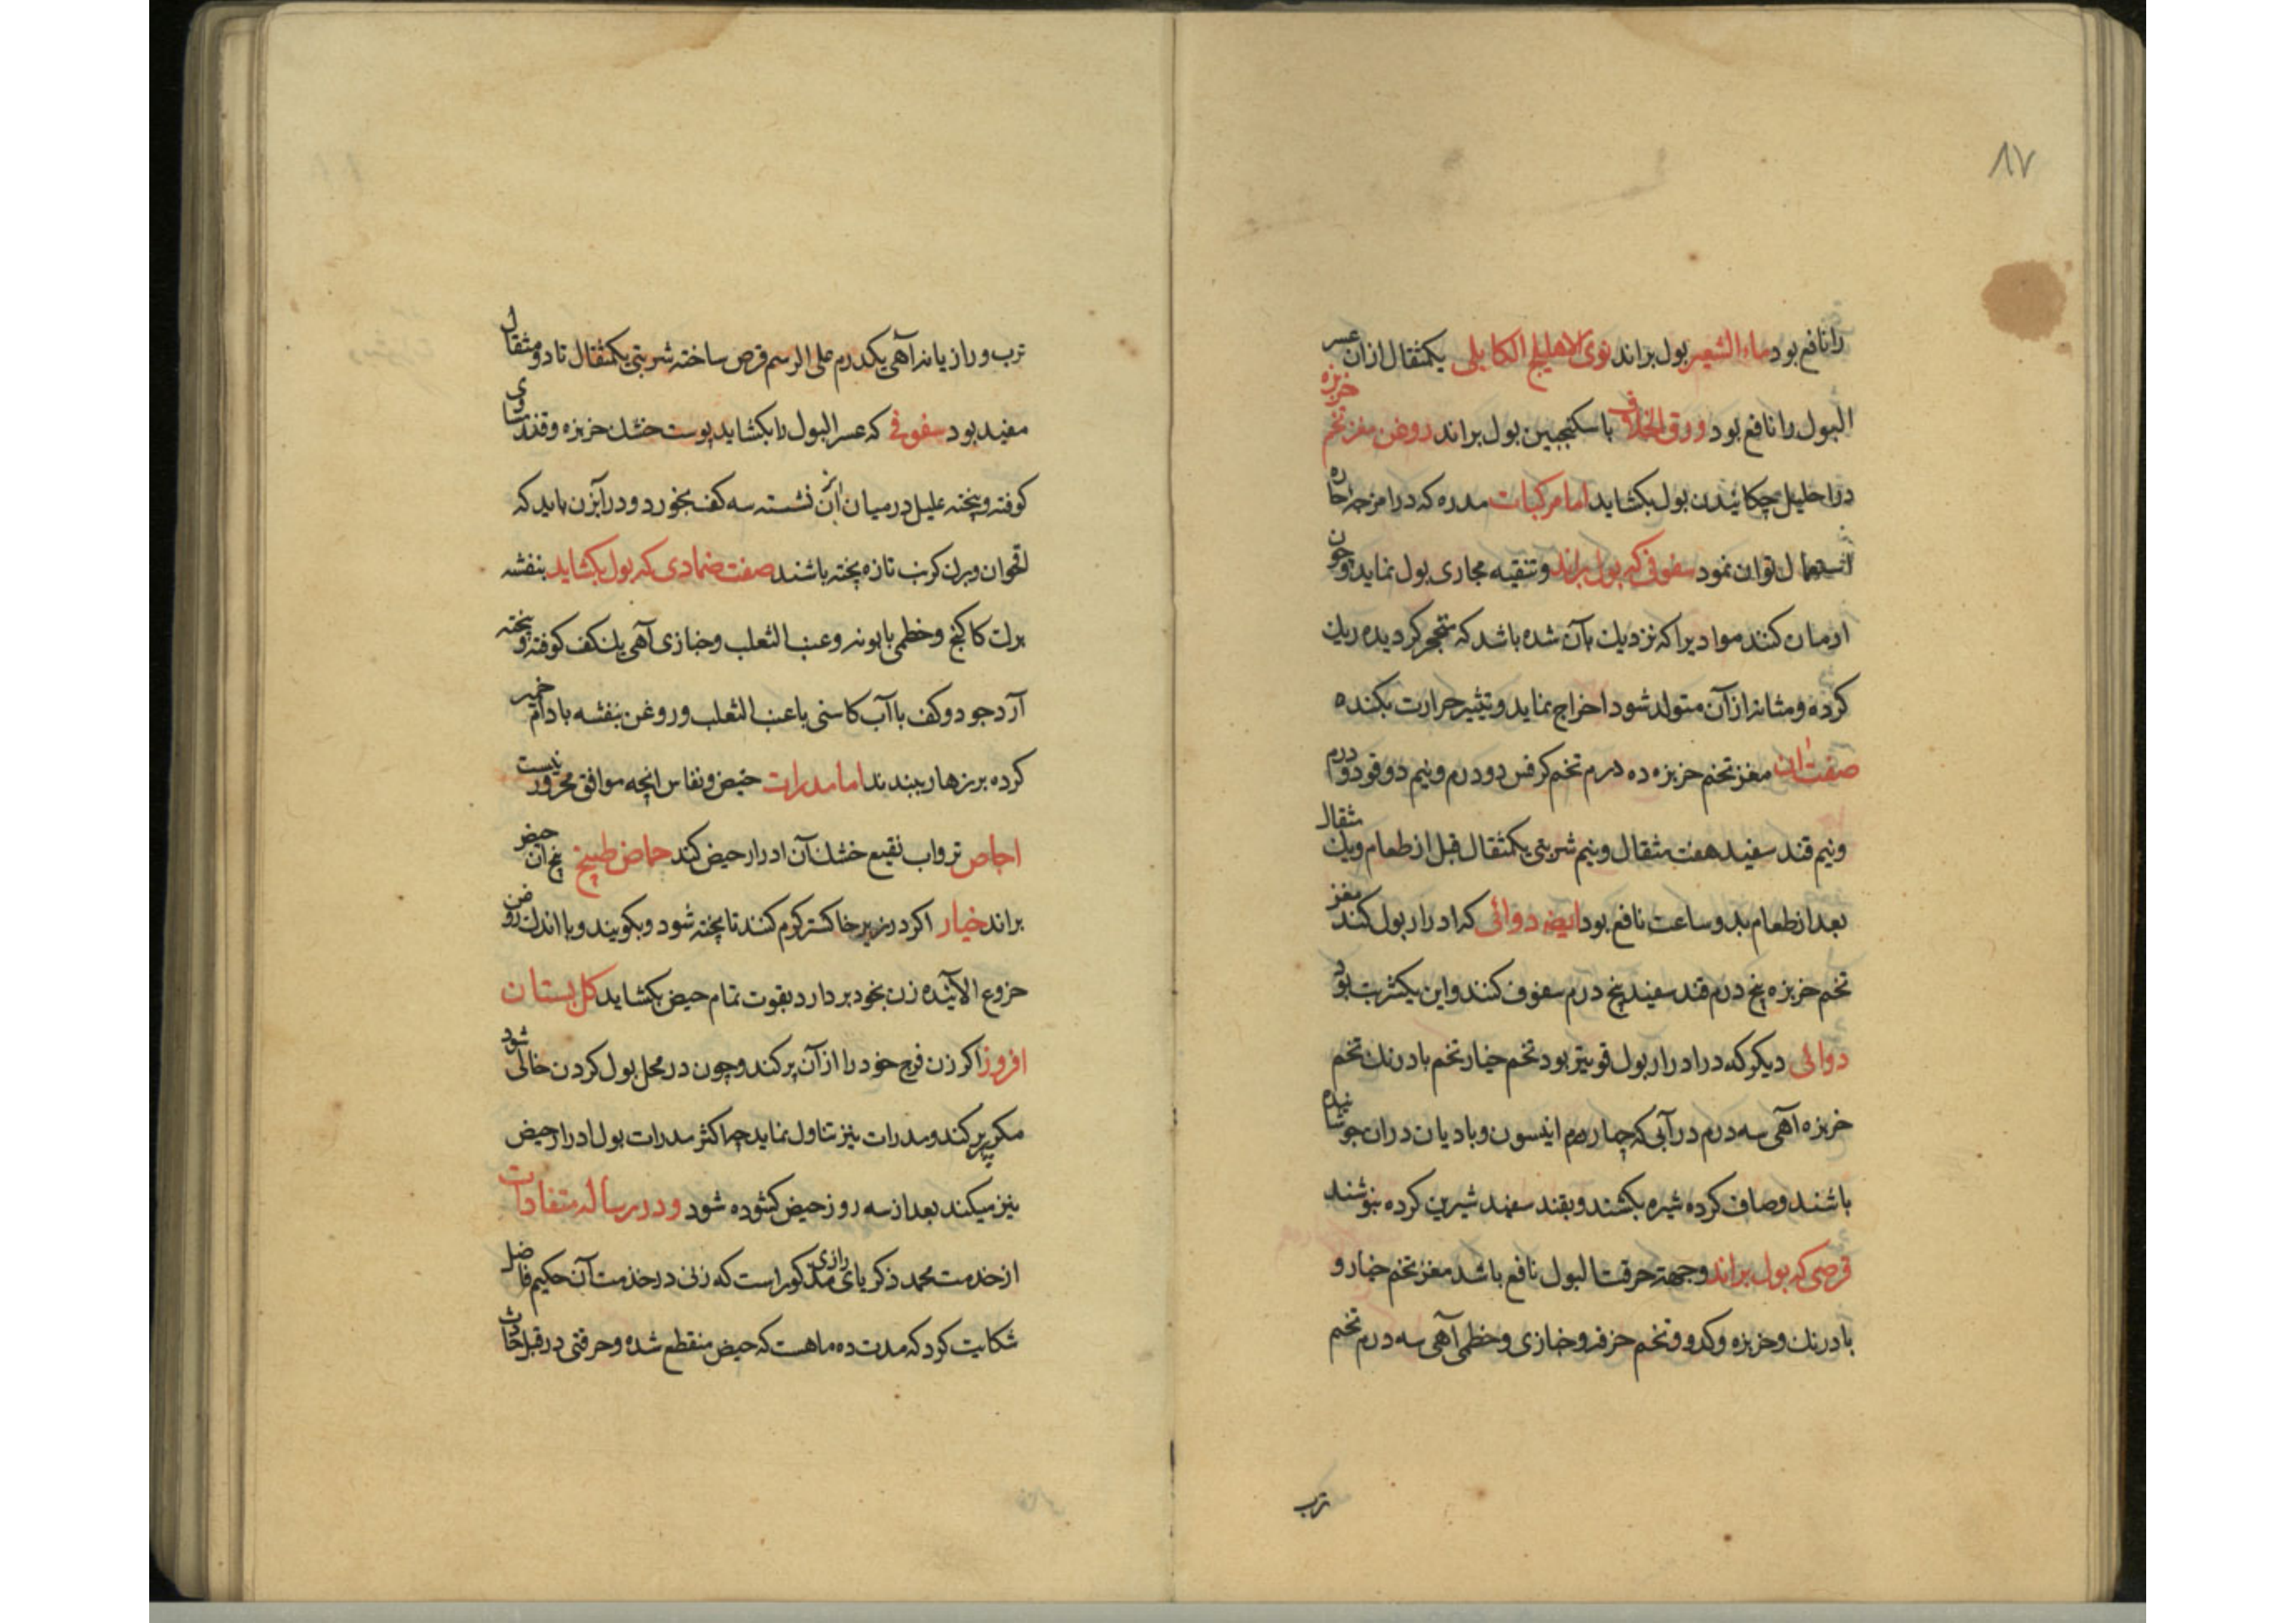 ۸۷
را نافع بود ماء الشعیر بول براند نوی الاهلیلج الکابلی یکمثقال ازان عسر
البول را نافع بود ورق الخلاف با سکنجبین بول براند روغن مغز تخم خربزه
در احلیل چکانیدن بول بکشاید اما مرکبات مدره که در امزجه حاره
استعمال توان نمود سفوفی که بول براند و تنقیه مجاری بول نماید و چون
ادمان کنند موادیرا که نزدیک بآن شده باشد که متحجر کردیده ریک
کرده و مثانه از آن متولد شود اخراج نماید و تثیر حرارت بکنده
صفت ان مغز تخم خربزه ده درم تخم کرفس دو درم و نیم دوقو دو درم
و نیم قند سفید هفت مثقال و نیم شربتی یکمثقال قبل از طعام و یک مثقال
بعد از طعام بدو ساعت نافع بود ایضه دوائی که ادرار بول کند مغز
تخم خربزه پنج درم قند سفید پنج درم سفوف کنند و این یکشربت بود
دوائی دیکر که در ادرار بول قویتر بود تخم خیار تخم بادرنک تخم
خربزه آهی سه درم در آبی که چهار درم انیسون و بادیان دران جوشانیده
باشند و صاف کرده شیره بکشند و بقند سفید شیرین کرده بنوشند
قرصی که بول براند و جهته حرقت البول نافع باشد مغز تخم خیار و
بادرنک و خربزه و کدو و تخم خرفه و خبازی و خطمی آهی سه درم تخم
ترب
ترب و رازیانه آهی یکدرم علی الرسم قرص ساخته شربتی یکمثقال تا دو مثقال
مفید بود سفوفی که عسر البول را بکشاید پوست خشک خربزه و قند مساوی
کوفته و پخته علیل در میان ابزن نشسته سه کف بخورد و در آبزن باید که
اقحوان و برک کرنب تازه پخته باشند صفت ضمادی که بول بکشاید بنفشه
برک کاکنج و خطمی بابونه و عنب الثعلب و خبازی آهی یک کف کوفته و پخته
آرد جو دو کف با آب کاسنی یا عنب الثعلب و روغن بنفشه بادام خمیر
کرده بر زهار ببندند اما مدرات حیض و نفاس انچه موافق محرور نیست
اجاص تر و اب نقیع خشک آن ادرار حیض کند حماض طبیخ بیخ آن حیض
براند خیار اکر در زیر خاکستر کرم کنند تا پخته شود و بکویند و با اندک روغن
خروع الائیده زن بخود بردارد بقوت تمام حیض بکشاید کل بستان
افروز اکر زن فرج خود را از آن پر کند و چون در محل بول کردن خالی شود
مکرر پر کند و مدرات نیز تناول نماید چه اکثر مدرات بول ادرار حیض
نیز میکند بعد از سه روز حیض کشوده شود و در رساله متفادات
از خدمت محمد ذکریای رازی مذکور است که زنی در خدمت آن حکیم فاضل
شکایت کرد که مدت ده ماهست که حیض منقطع شده و حرقتی در قبل حادث